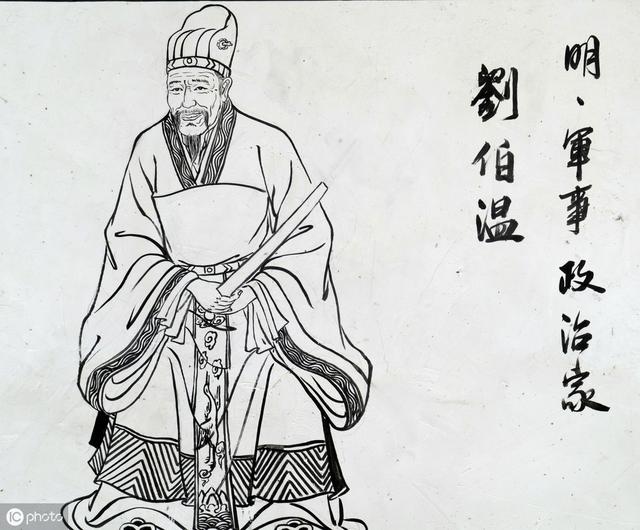 明、軍事政治家
劉伯温
iC photo